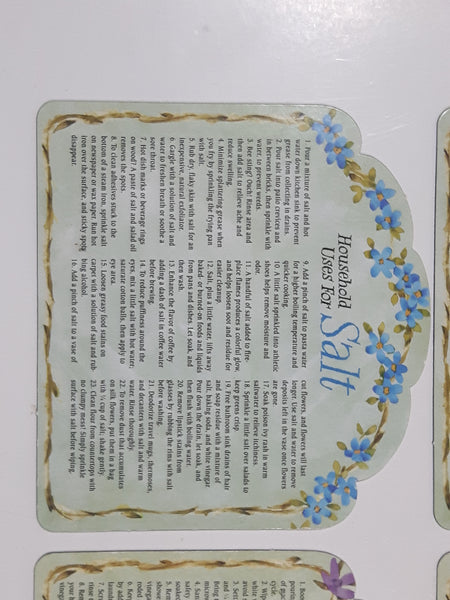 Household
Uses For Salt
1. Pour a mixture of salt and hot
water down kitchen sink to prevent
grease from collecting in drains.
2. Pour salt into patio crevices and
in between bricks, then sprinkle with
water, to prevent weeds.
3. Bee sting? Ouch! Rinse area and
then add salt to relieve ache and
reduce swelling.
4. Minimize splattering grease when
you fry by sprinkling the frying pan
with salt.
5. Rub dry, flaky skin with salt for an
inexpensive, natural exfoliator.
6. Gargle with a solution of salt and
water to freshen breath or soothe a
sore throat.
7. Hot dish marks or beverage rings
on wood? A paste of salt and salad oil
removes the spots.
8. To clean adhesives stuck to the
bottom of a steam iron, sprinkle salt
on newspaper or wax paper. Run hot
iron over the surface, and sticky spots
disappear.
9. Add a pinch of salt to pasta water
for a higher boiling temperature and
quicker cooking.
10. A little salt sprinkled into athletic
shoes helps remove moisture and
odor.
11. A handful of salt added to fire-
place flames produces a colorful glow
and helps loosen soot and residue for
easier cleanup.
12. Salt, plus a little water, lifts away
baked- or burned-on foods and liquids
from pans and dishes. Let soak, and
then wash.
13. Enhance the flavor of coffee by
adding a dash of salt in coffee water
before brewing.
14. To reduce puffiness around the
eyes, mix a little salt with hot water;
saturate cotton balls, then apply to
eye area.
15. Loosen greasy food stains on
carpet with a solution of salt and rub-
bing alcohol.
16. Add a pinch of salt to a vase of
cut flowers, and flowers will last
longer. Use salt and water to remove
deposits left in the vase once flowers
are gone.
17. Soak poison ivy rash in warm
saltwater to relieve itchiness.
18. Sprinkle a little salt over salads to
keep greens crisp.
19. Free bathroom sink drains of hair
and soap residue with a mixture of
salt, baking soda, and white vinegar.
Pour down the drain, let soak, and
then flush with boiling water.
20. Remove lipstick stains from
glasses by rubbing the rim with salt
before washing.
21. Deodorize travel mugs, thermoses,
and decanters with salt and warm
water. Rinse thoroughly.
22. To remove dust that accumulates
on silk flowers, put them in a bag
with ¼ cup of salt; shake gently.
23. Clean flour from countertops with
no clumpy mess! Simply sprinkle
surface with salt before wiping.